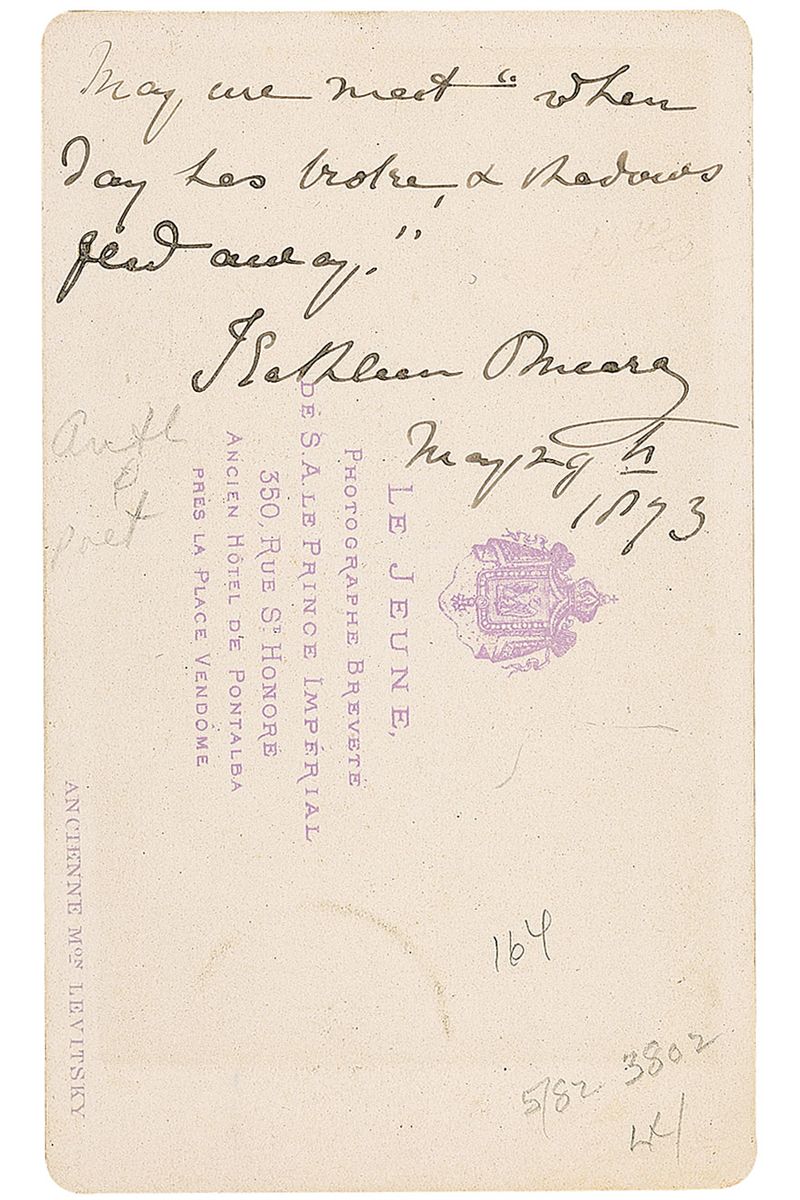 May we meet "when
day has broke, & shadows
fled away."
Kathleen O'Meara
May 29th
1873
LE JEUNE,
PHOTOGRAPHE BREVETÉ
DE S. A. LE PRINCE IMPÉRIAL
350, RUE ST HONORÉ
ANCIEN HÔTEL DE PONTALBA
PRÈS LA PLACE VENDÔME
ANCIENNE MON LEVITSKY
poet
164
5/82 3802